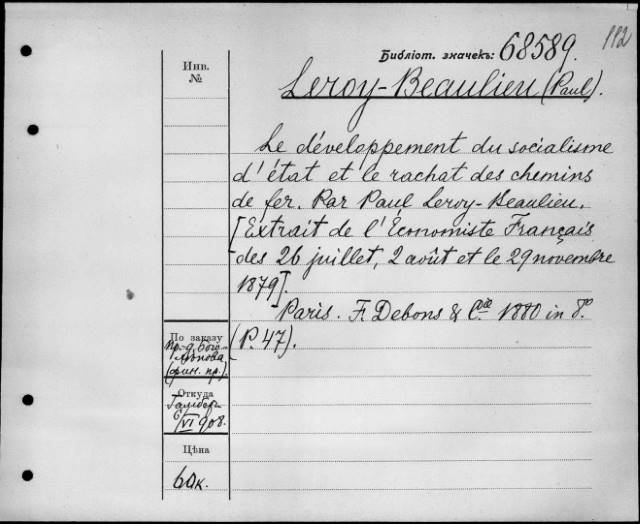 112
Библіот. значекъ: 68589.
Инв.
№
Leroy-Beaulieu (Paul).
Le développement du socialisme
d'état et le rachat des chemins
de fer. Par Paul Leroy-Beaulieu.
[Extrait de l'Économiste Français
des 26 juillet, 2 août et le 29 novembre
1879].
Paris. F. Debons & Cie 1880 in 8º.
(P. 47).
По заказу
(фин. пр.).
Откуда
6/VI 908.
Цѣна
60к.